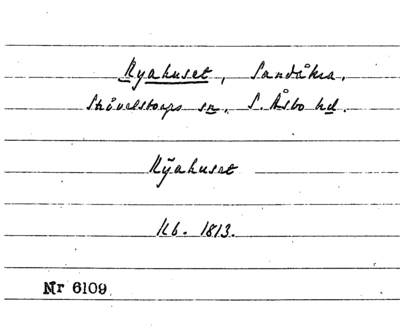 Nyahuset, Sandåkra.
Skåvelstorps sn. S. Åsbo hd.
Nÿahuset
Kb. 1813.
Nr 6109